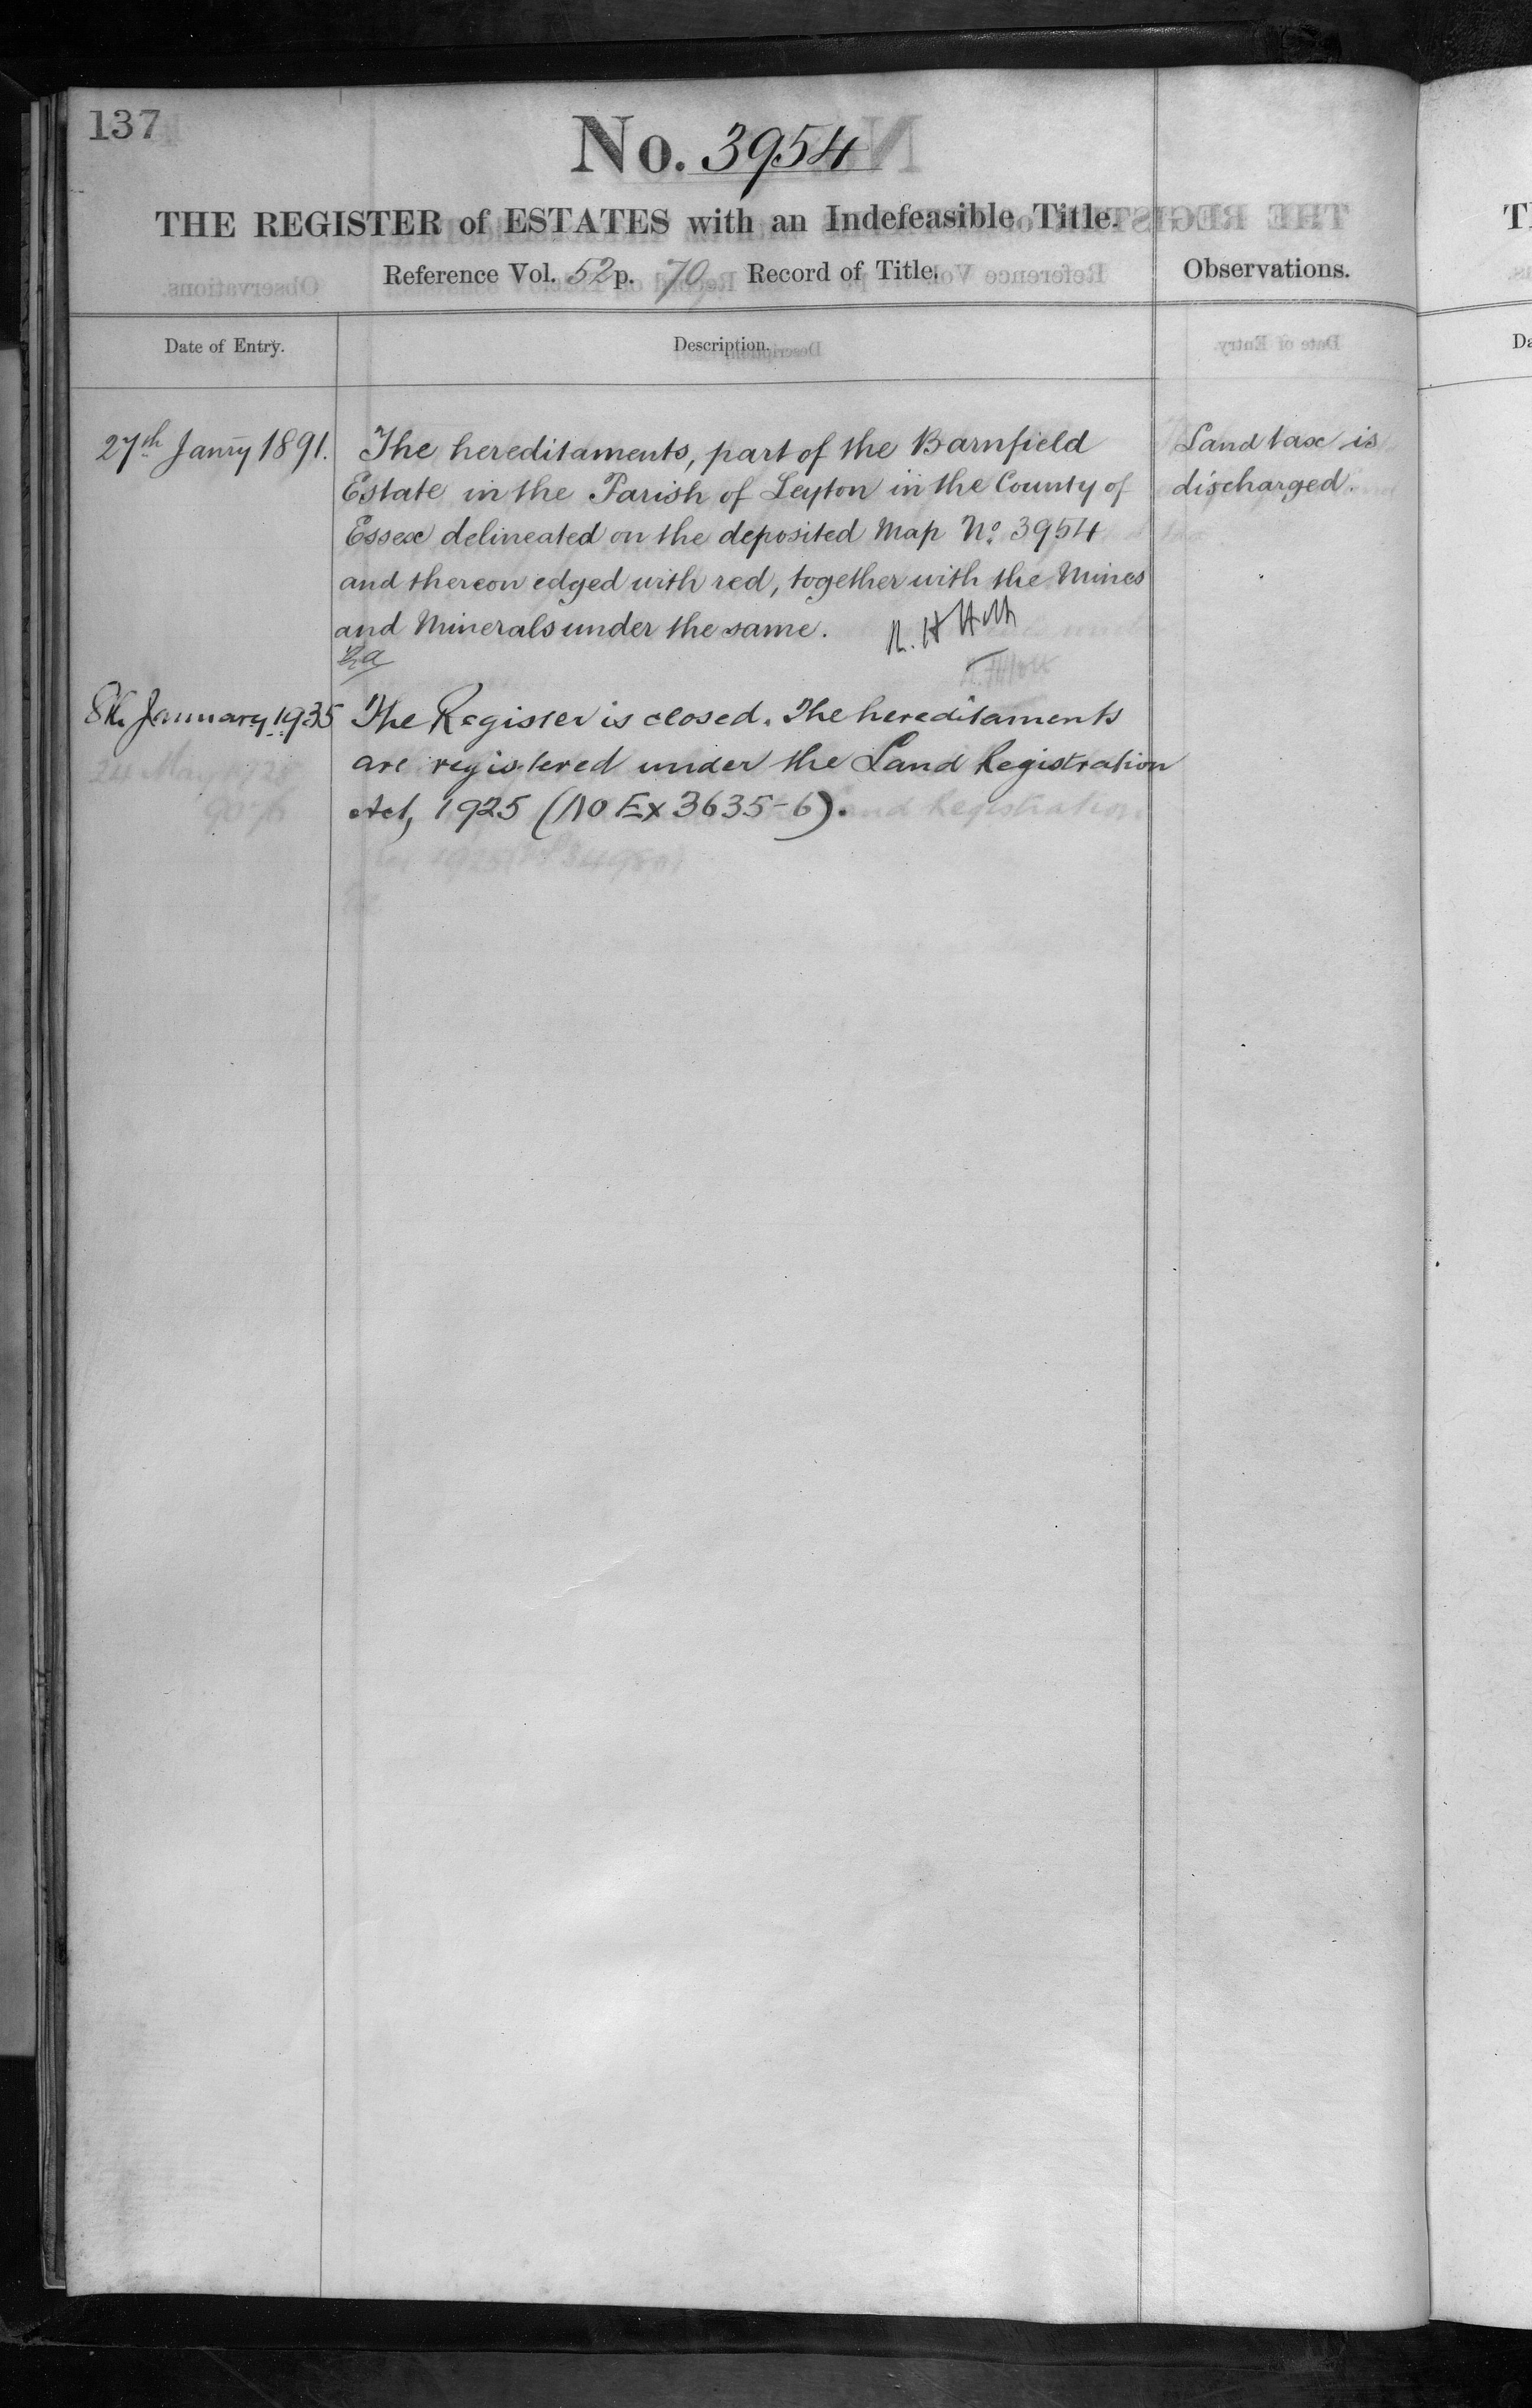 137
No. 3954
THE REGISTER of ESTATES with an Indefeasible Title.
Reference Vol. 52 p. 70 Record of Title.
Observations.
Date of Entry.
Description.
27th Janry 1891.
The hereditaments, part of the Barnfield
Estate in the Parish of Leyton in the County of
Essex delineated on the deposited Map No. 3954
and thereon edged with red, together with the Mines
and Minerals under the same.
Land tax is
discharged.
8th January 1935
The Register is closed. The hereditaments
are registered under the Land Registration
Act, 1925 (No Ex 3635-6).